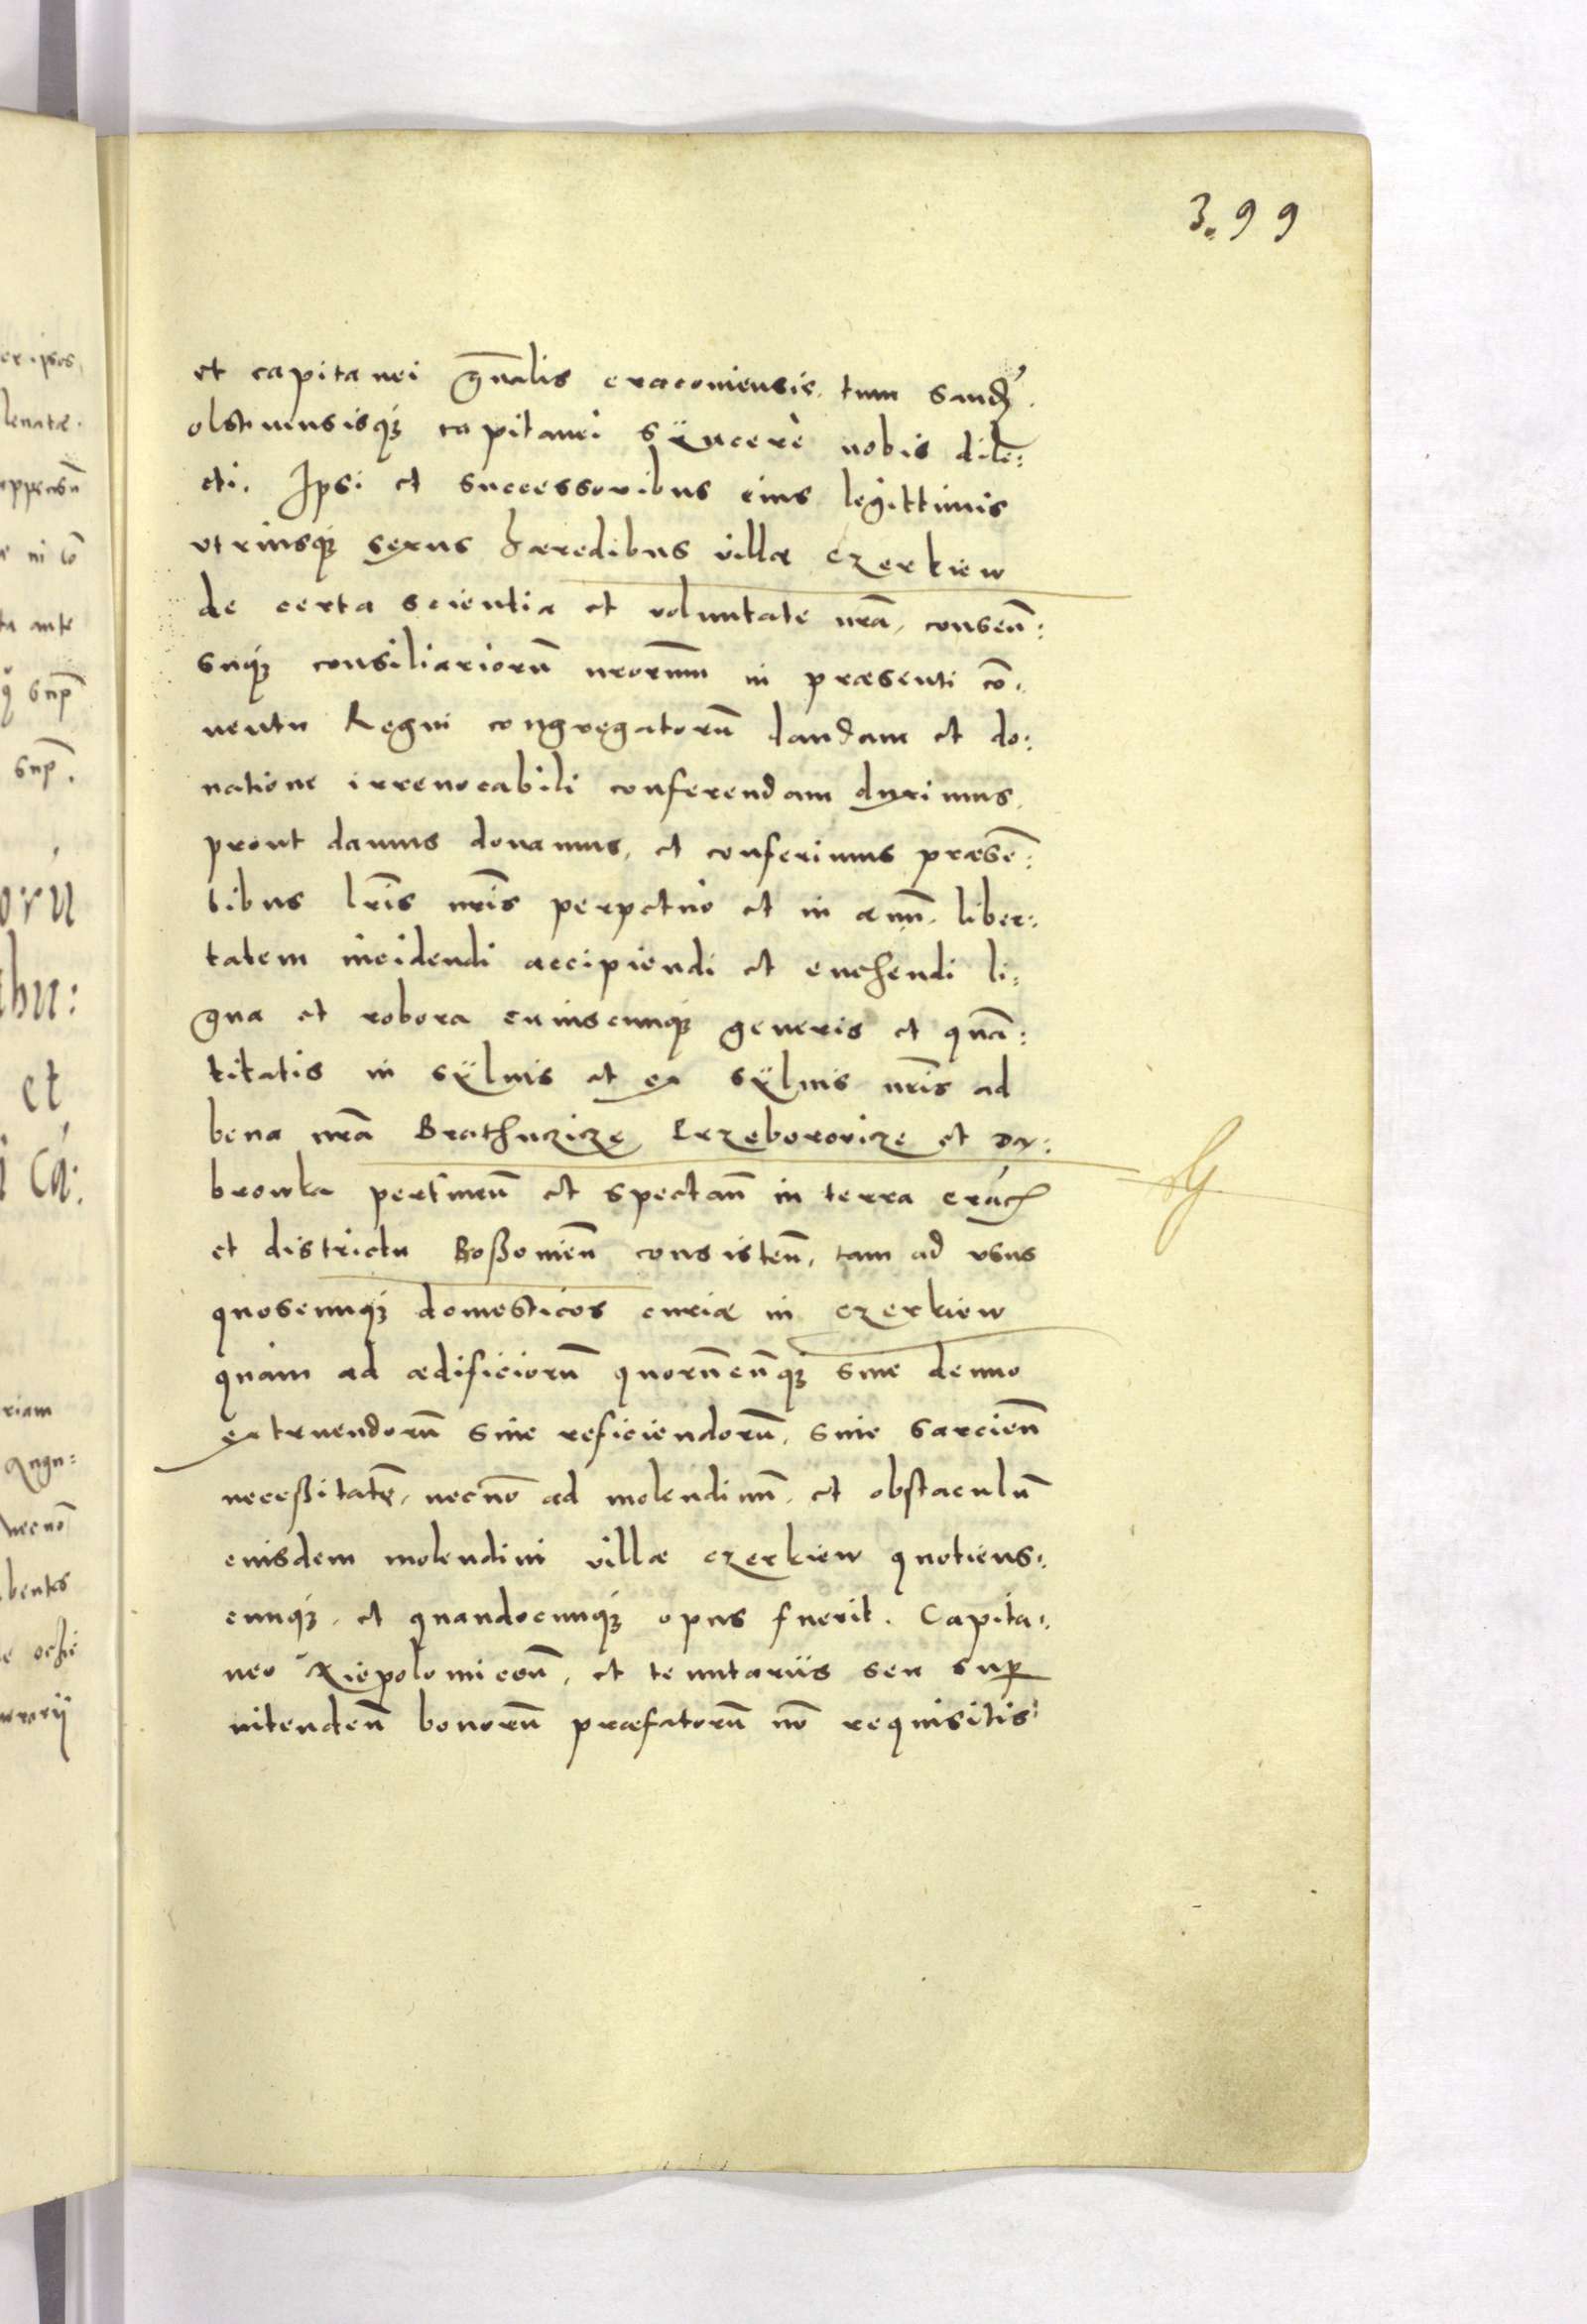 3.99
et capitanei gn̄alis cracoviensis. tum Sandꝫ.
olstinensisqꝫ capitanei sÿncerè nobis dilē:
cti. Ipsi et successoribus eius legittimis
vtriusqꝫ sexus hæredibus villæ Czerkiew
de certa scientia et voluntate nrā, consen̄:
suqꝫ consiliariorū nrorum in præsenti cō:
uentu Regni congregatorū dandam et do:
natione irreuocabili conferendam duximus,
prout damus donamus, et conferimus præsē:
tibus lrīs nrīs perpetuò et in æuū. liber:
tatem incidendi accipiendi et euehendi li:
gna et robora cuiuscunqꝫ generis et quā:
titatis in sÿluis et ex sÿluis nrīs ad
bona nrā Brathuczicze Krzeborovicze et Da:
browka pertinen̄ et spectan̄ in terra Crac̄
et districtu Boßonien̄ consisten̄, tam ad vsus
quoscunqꝫ domesticos curiæ in Czerkiew
quàm ad ædificiorū quorūcūqꝫ siue denuo
extruendorū siue reficiendorū, siue sarcien̄
neceßitatē, necnō ad molendinū, et obstaculū
eiusdem molendini villæ Czerkiew quotiens:
cunqꝫ, et quandocunqꝫ opus fuerit. Capita:
neo Niepolomicen̄, et tenutariis seu sup
intenden̄ bonorū præfatorū nō requisitis